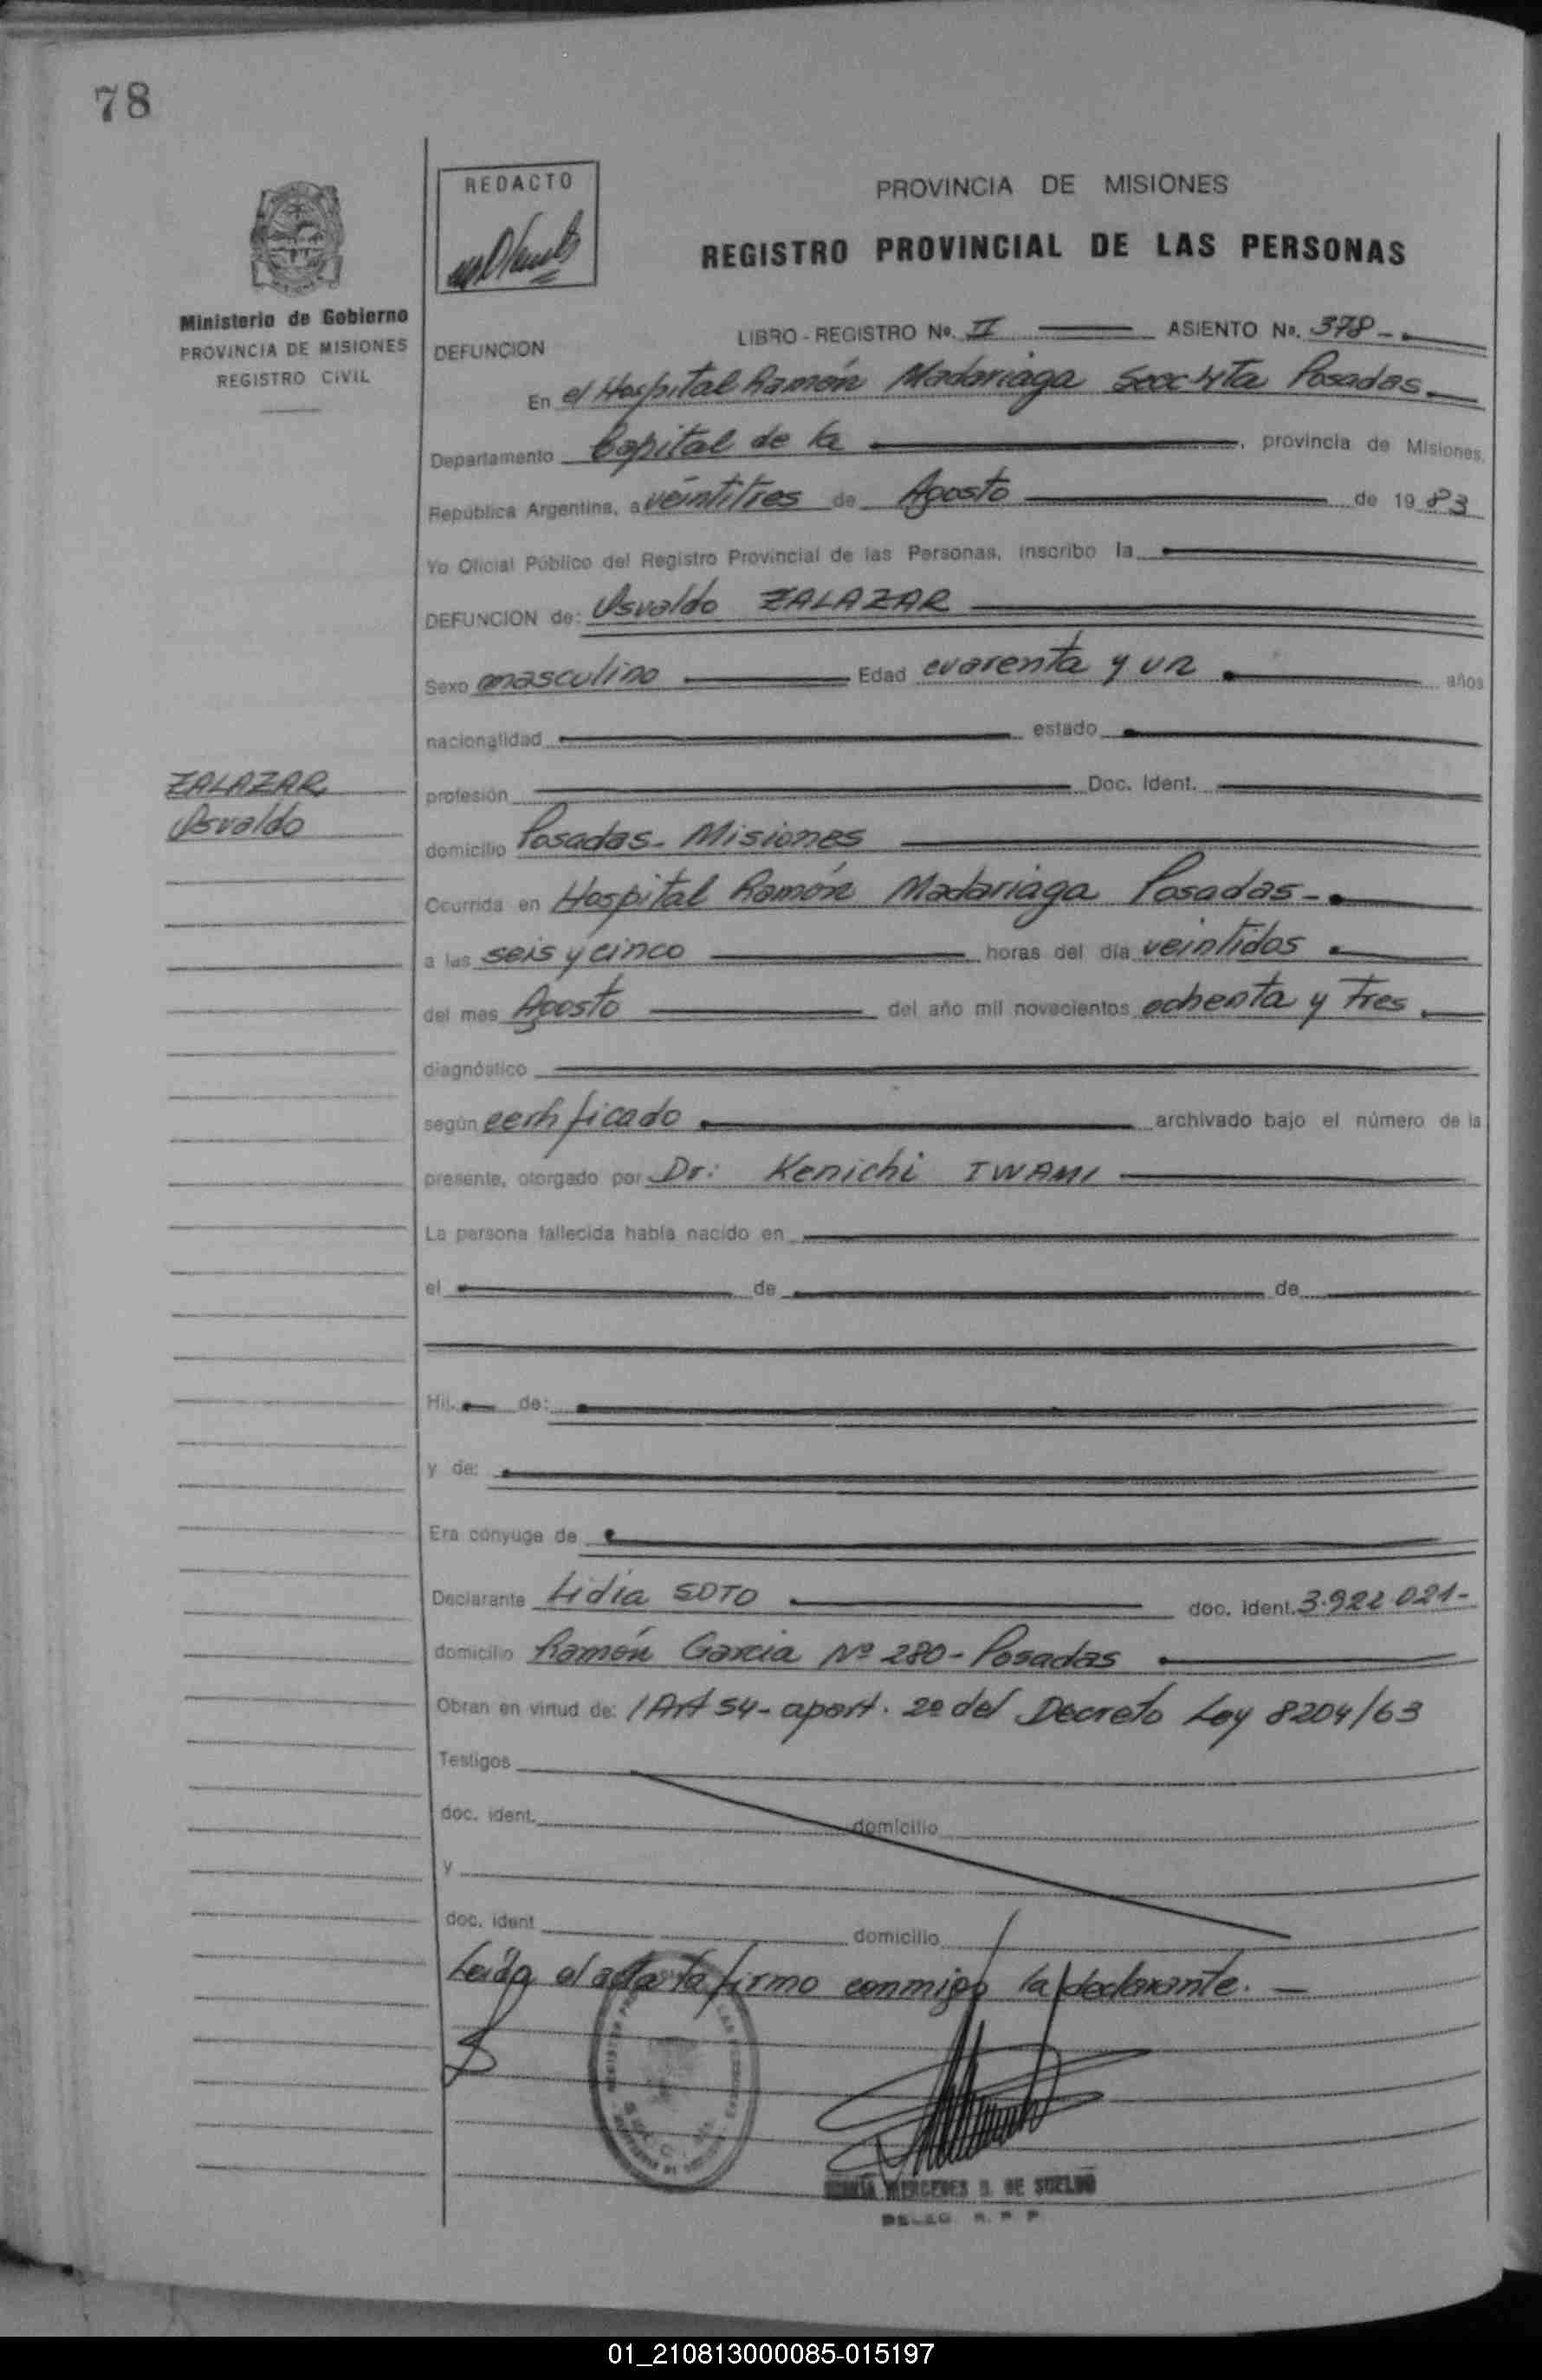 78
REDACTO
PROVINCIA DE MISIONES
REGISTRO PROVINCIAL DE LAS PERSONAS
Ministerio de Gobierno
PROVINCIA DE MISIONES
REGISTRO CIVIL
LIBRO - REGISTRO No. II ASIENTO No. 378 -
DEFUNCION
En el Hospital Ramón Madariaga Secc 4ta Posadas
Departamento Capital de la , provincia de Misiones,
República Argentina, a veintitres de Agosto de 1983
Yo Oficial Público del Registro Provincial de las Personas, inscribo la
DEFUNCION de: Osvaldo ZALAZAR
Sexo masculino Edad cuarenta y un años
nacionalidad estado
ZALAZAR
Osvaldo
profesión Doc. Ident.
domicilio Posadas - Misiones
Ocurrida en Hospital Ramón Madariaga Posadas -
a las seis y cinco horas del día veintidos
del mes Agosto del año mil novecientos ochenta y tres
diagnóstico
según certificado archivado bajo el número de la
presente, otorgado por Dr: Kenichi IWAMI
La persona fallecida había nacido en
el de de
Hij. de:
y de:
Era cónyuge de
Declarante Lidia SOTO doc. ident. 3.922.021-
domicilio Ramón Garcia Nº 280 - Posadas
Obran en virtud de: / Art 54 - apart. 2º del Decreto Ley 8204/63
Testigos
doc. ident. domicilio
y
doc. ident domicilio
Leida el acta la firmo conmigo la declarante. -
MERCEDES DE SUELDO
DELEG. R. P. P.
01_210813000085-015197